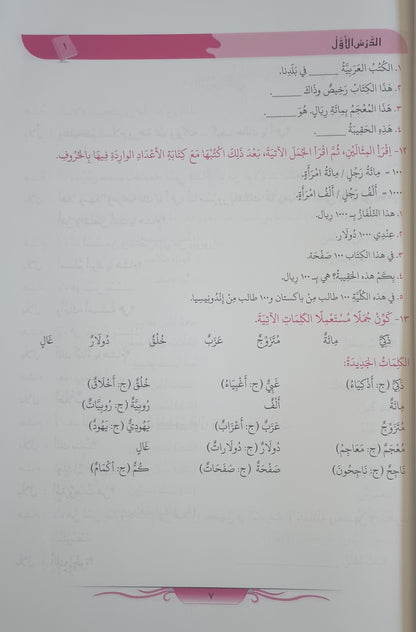 الدَّرْسُ الأَوَّلُ
١
١. الكُتُبُ العَرَبِيَّةُ ______ فِي بَلَدِنا.
٢. هَذَا الكِتَابُ رَخِيصٌ وذَاكَ______.
٣. هَذَا المُعْجَمُ بِمِائَةِ رِيَالٍ. هُوَ______.
٤. هَذِهِ الحَقِيبَةُ ______.
١٢- اِقْرَأ المِثَالَيْنِ، ثُمَّ اقْرَأ الجُمَلَ الآتيَةَ، بَعْدَ ذَلِكَ اكْتُبْهَا مَعَ كِتابَةِ الأَعْدَادِ الوارِدَةِ فِيهَا بِالحُرُوفِ.
١٠٠ = مِائَةُ رَجُلٍ / مِائَةُ امْرَأَةٍ.
١٠٠٠ = أَلْفُ رَجُلٍ / أَلْفُ امْرَأَةٍ.
١. هذا التِّلْفَازُ بِـ ١٠٠٠ ريال.
٢. عِنْدِي ١٠٠٠ دُولَار.
٣. في هذا الكِتَابِ ١٠٠ صَفْحَة.
٤. بِكَمْ هذِهِ الحَقِيبةُ؟ هي بِـ ١٠٠ رِيال.
٥. في هذه الكُلِّيَّةِ ١٠٠ طالب مِنْ باكستان و١٠٠ طالب مِنْ إنْدُونِيسِيا.
١٣- كَوِّنْ جُمَلًا مُسْتَعْمِلًا الكَلِمَاتِ الآتِيَةَ.
ذَكِيٌّ مِائَةٌ مُتَزَوِّجٌ عَرَبٌ خُلُقٌ دُولَارٌ غَالٍ
الكَلِمَاتُ الجَدِيدَةُ:
ذَكِيٌّ (ج: أَذْكِيَاءُ) غَبِيٌّ (ج: أَغْبِيَاءُ) خُلُقٌ (ج: أَخْلَاقٌ)
مِائَةٌ أَلْفٌ رُوبِيَّةٌ (ج: رُوبِيَّاتٌ)
مُتَزَوِّجٌ عَرَبٌ (ج: أَعْرَابٌ) يَهُودِيٌّ (ج: يَهُودُ)
مُعْجَمٌ (ج: مَعَاجِمُ) دُولَارٌ (ج: دُولَارَاتٌ) غَالٍ
نَاجِحٌ (ج: نَاجِحُونَ) صَفْحَةٌ (ج: صَفَحَاتٌ) كُمٌّ (ج: أَكْمَامٌ)
٧